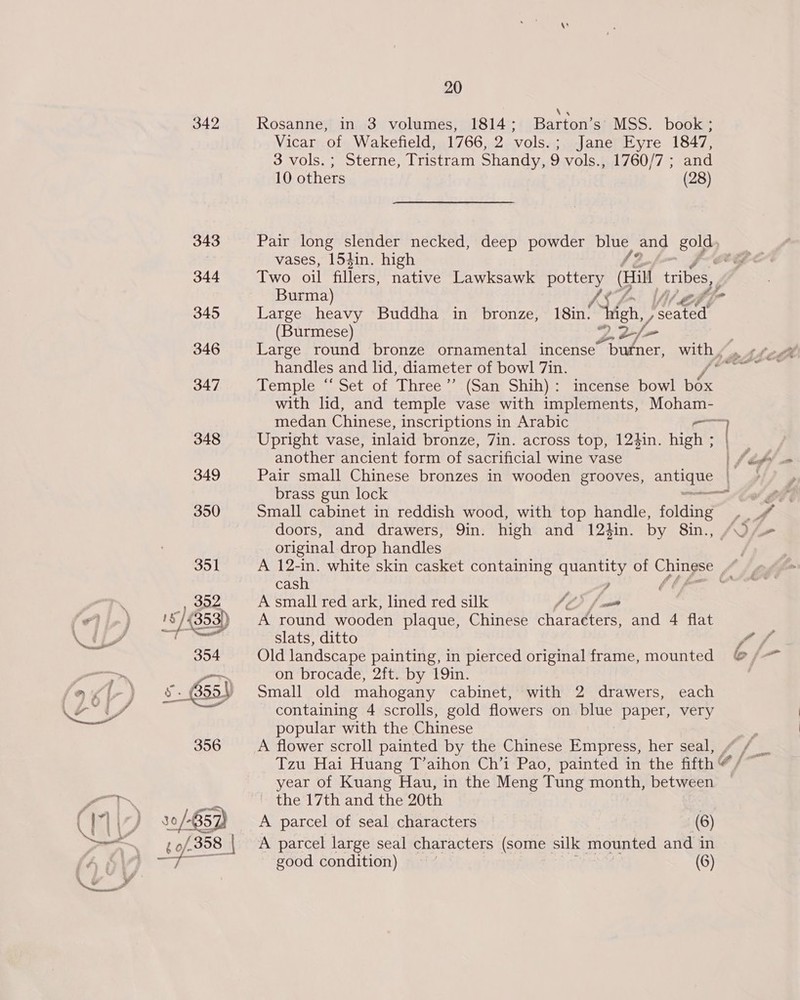 20
342 Rosanne, in 3 volumes, 1814; Barton's MSS. book;
Vicar of Wakefield, 1766, 2 vols.; Jane Eyre 1847,
3 vols.; Sterne, Tristram Shandy, 9 vols., 1760/7; and
10 others (28)
343 Pair long slender necked, deep powder blue and gold
vases, 15½in. high
344 Two oil fillers, native Lawksawk pottery (Hill tribes,
Burma)
345 Large heavy Buddha in bronze, 18in. high, seated
(Burmese)
346 Large round bronze ornamental incense burner, with
handles and lid, diameter of bowl 7in.
347 Temple "Set of Three" (San Shih): incense bowl box
with lid, and temple vase with implements, Moham-
medan Chinese, inscriptions in Arabic
348 Upright vase, inlaid bronze, 7in. across top, 12½in. high;
another ancient form of sacrificial wine vase
349 Pair small Chinese bronzes in wooden grooves, antique
brass gun lock
350 Small cabinet in reddish wood, with top handle, folding
doors, and drawers, 9in. high and 12½in. by 8in.,
original drop handles
351 A 12-in. white skin casket containing quantity of Chinese
cash
352 A small red ark, lined red silk
15/ 353 A round wooden plaque, Chinese characters, and 4 flat
slats, ditto
354 Old landscape painting, in pierced original frame, mounted
on brocade, 2ft. by 19in.
355 Small old mahogany cabinet, with 2 drawers, each
containing 4 scrolls, gold flowers on blue paper, very
popular with the Chinese
356 A flower scroll painted by the Chinese Empress, her seal,
Tzu Hai Huang T'aihon Ch'i Pao, painted in the fifth
year of Kuang Hau, in the Meng Tung month, between
the 17th and the 20th
30/- 357 A parcel of seal characters (6)
358 A parcel large seal characters (some silk mounted and in
good condition) (6)